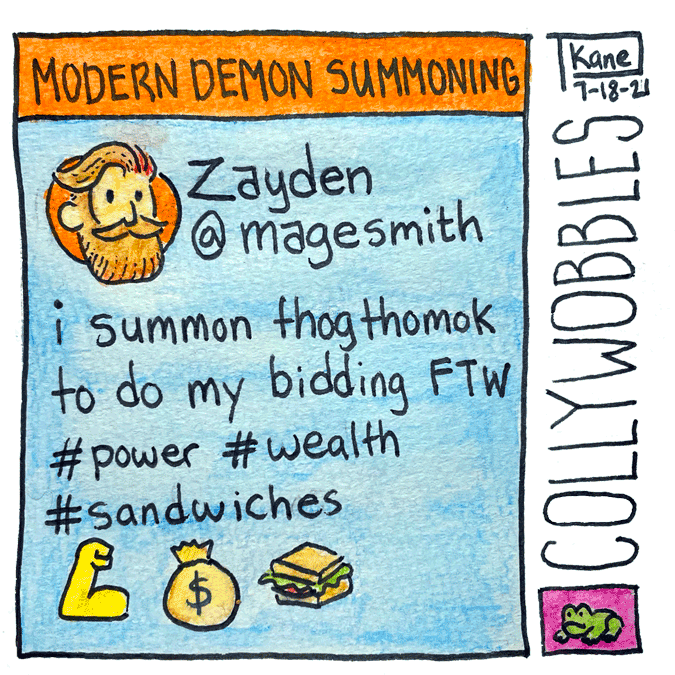 MODERN DEMON SUMMONING
Zayden
@magesmith
i summon thogthomok
to do my bidding FTW
#power #wealth
#sandwiches
$
Kane
7-18-21
COLLYWOBBLES